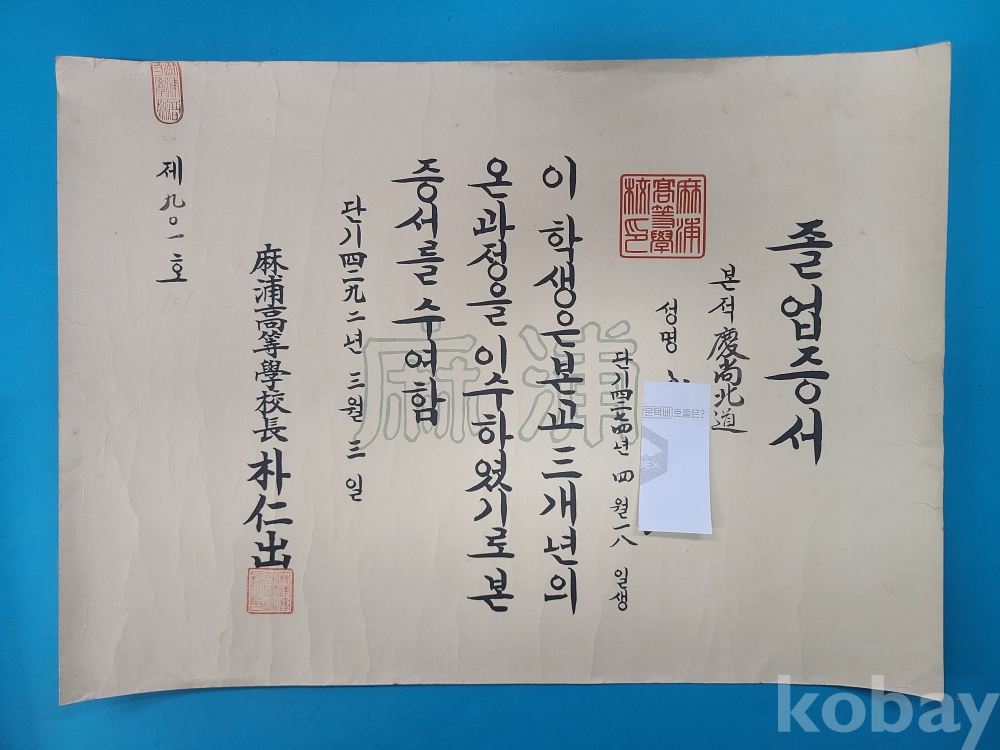 졸업증서
본적 慶尚北道
성명
단기四二七四년 四월一八일생
麻浦高等學校印
이 학생은본교 三개년의
온과정을 이수하였기로 본
증서를 수여함
단기四二九二년 三월 三일
麻浦高等學校長 朴仁出
제九○一호
901
麻浦
택배 호출은?
kobay